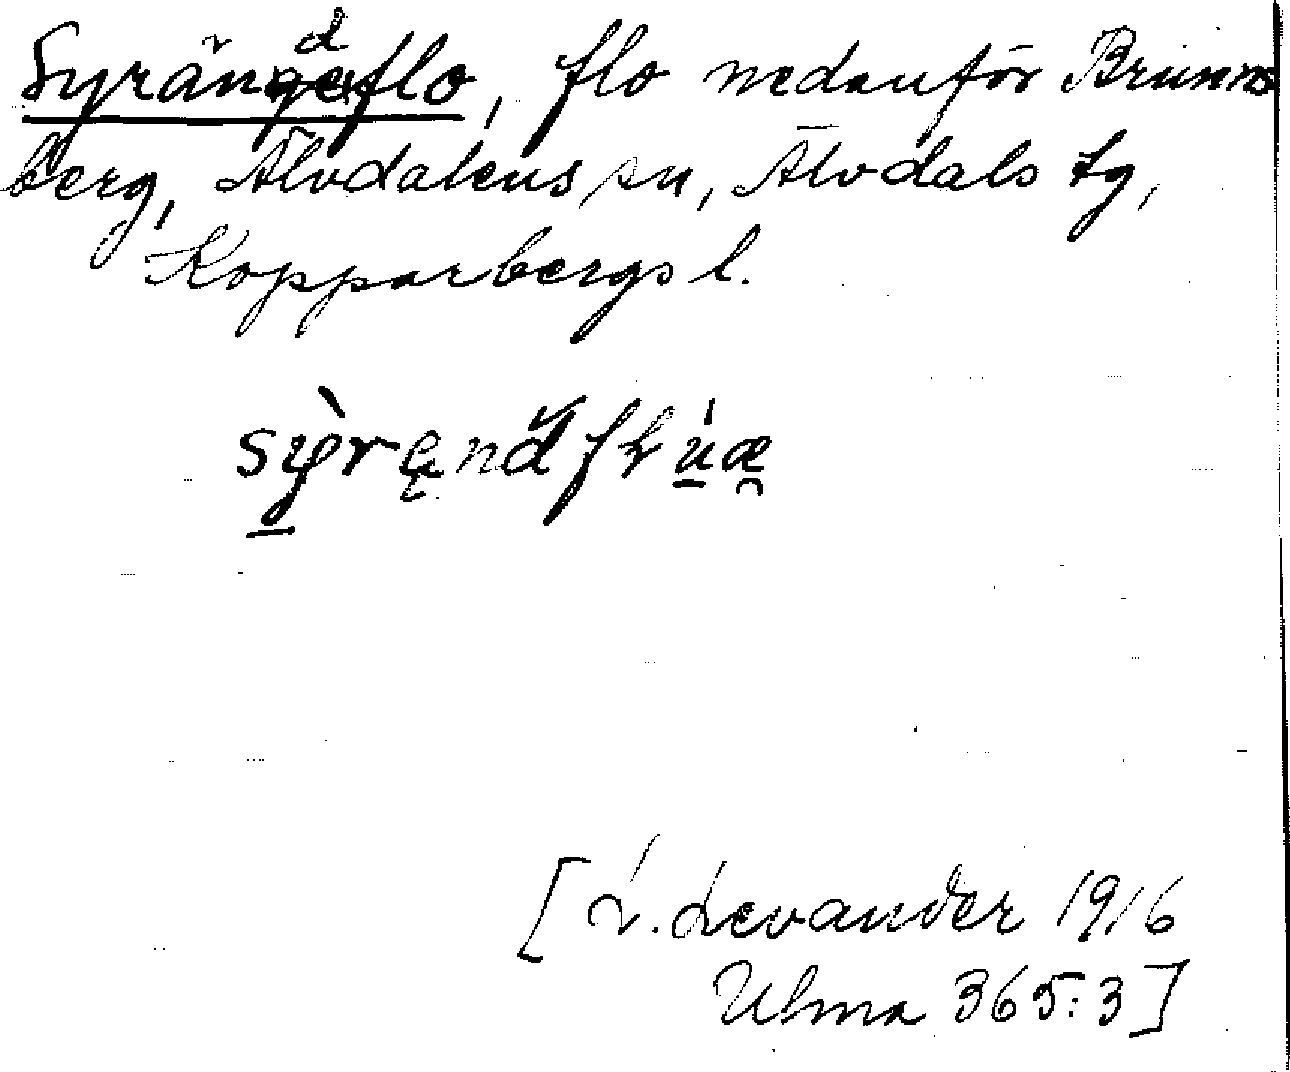 Syrändflo, flo nedanför Brunns
berg, Älvdalens sn, Älvdals tg,
Kopparbergs l.
[L. Levander 1916
Ulma 365:3]